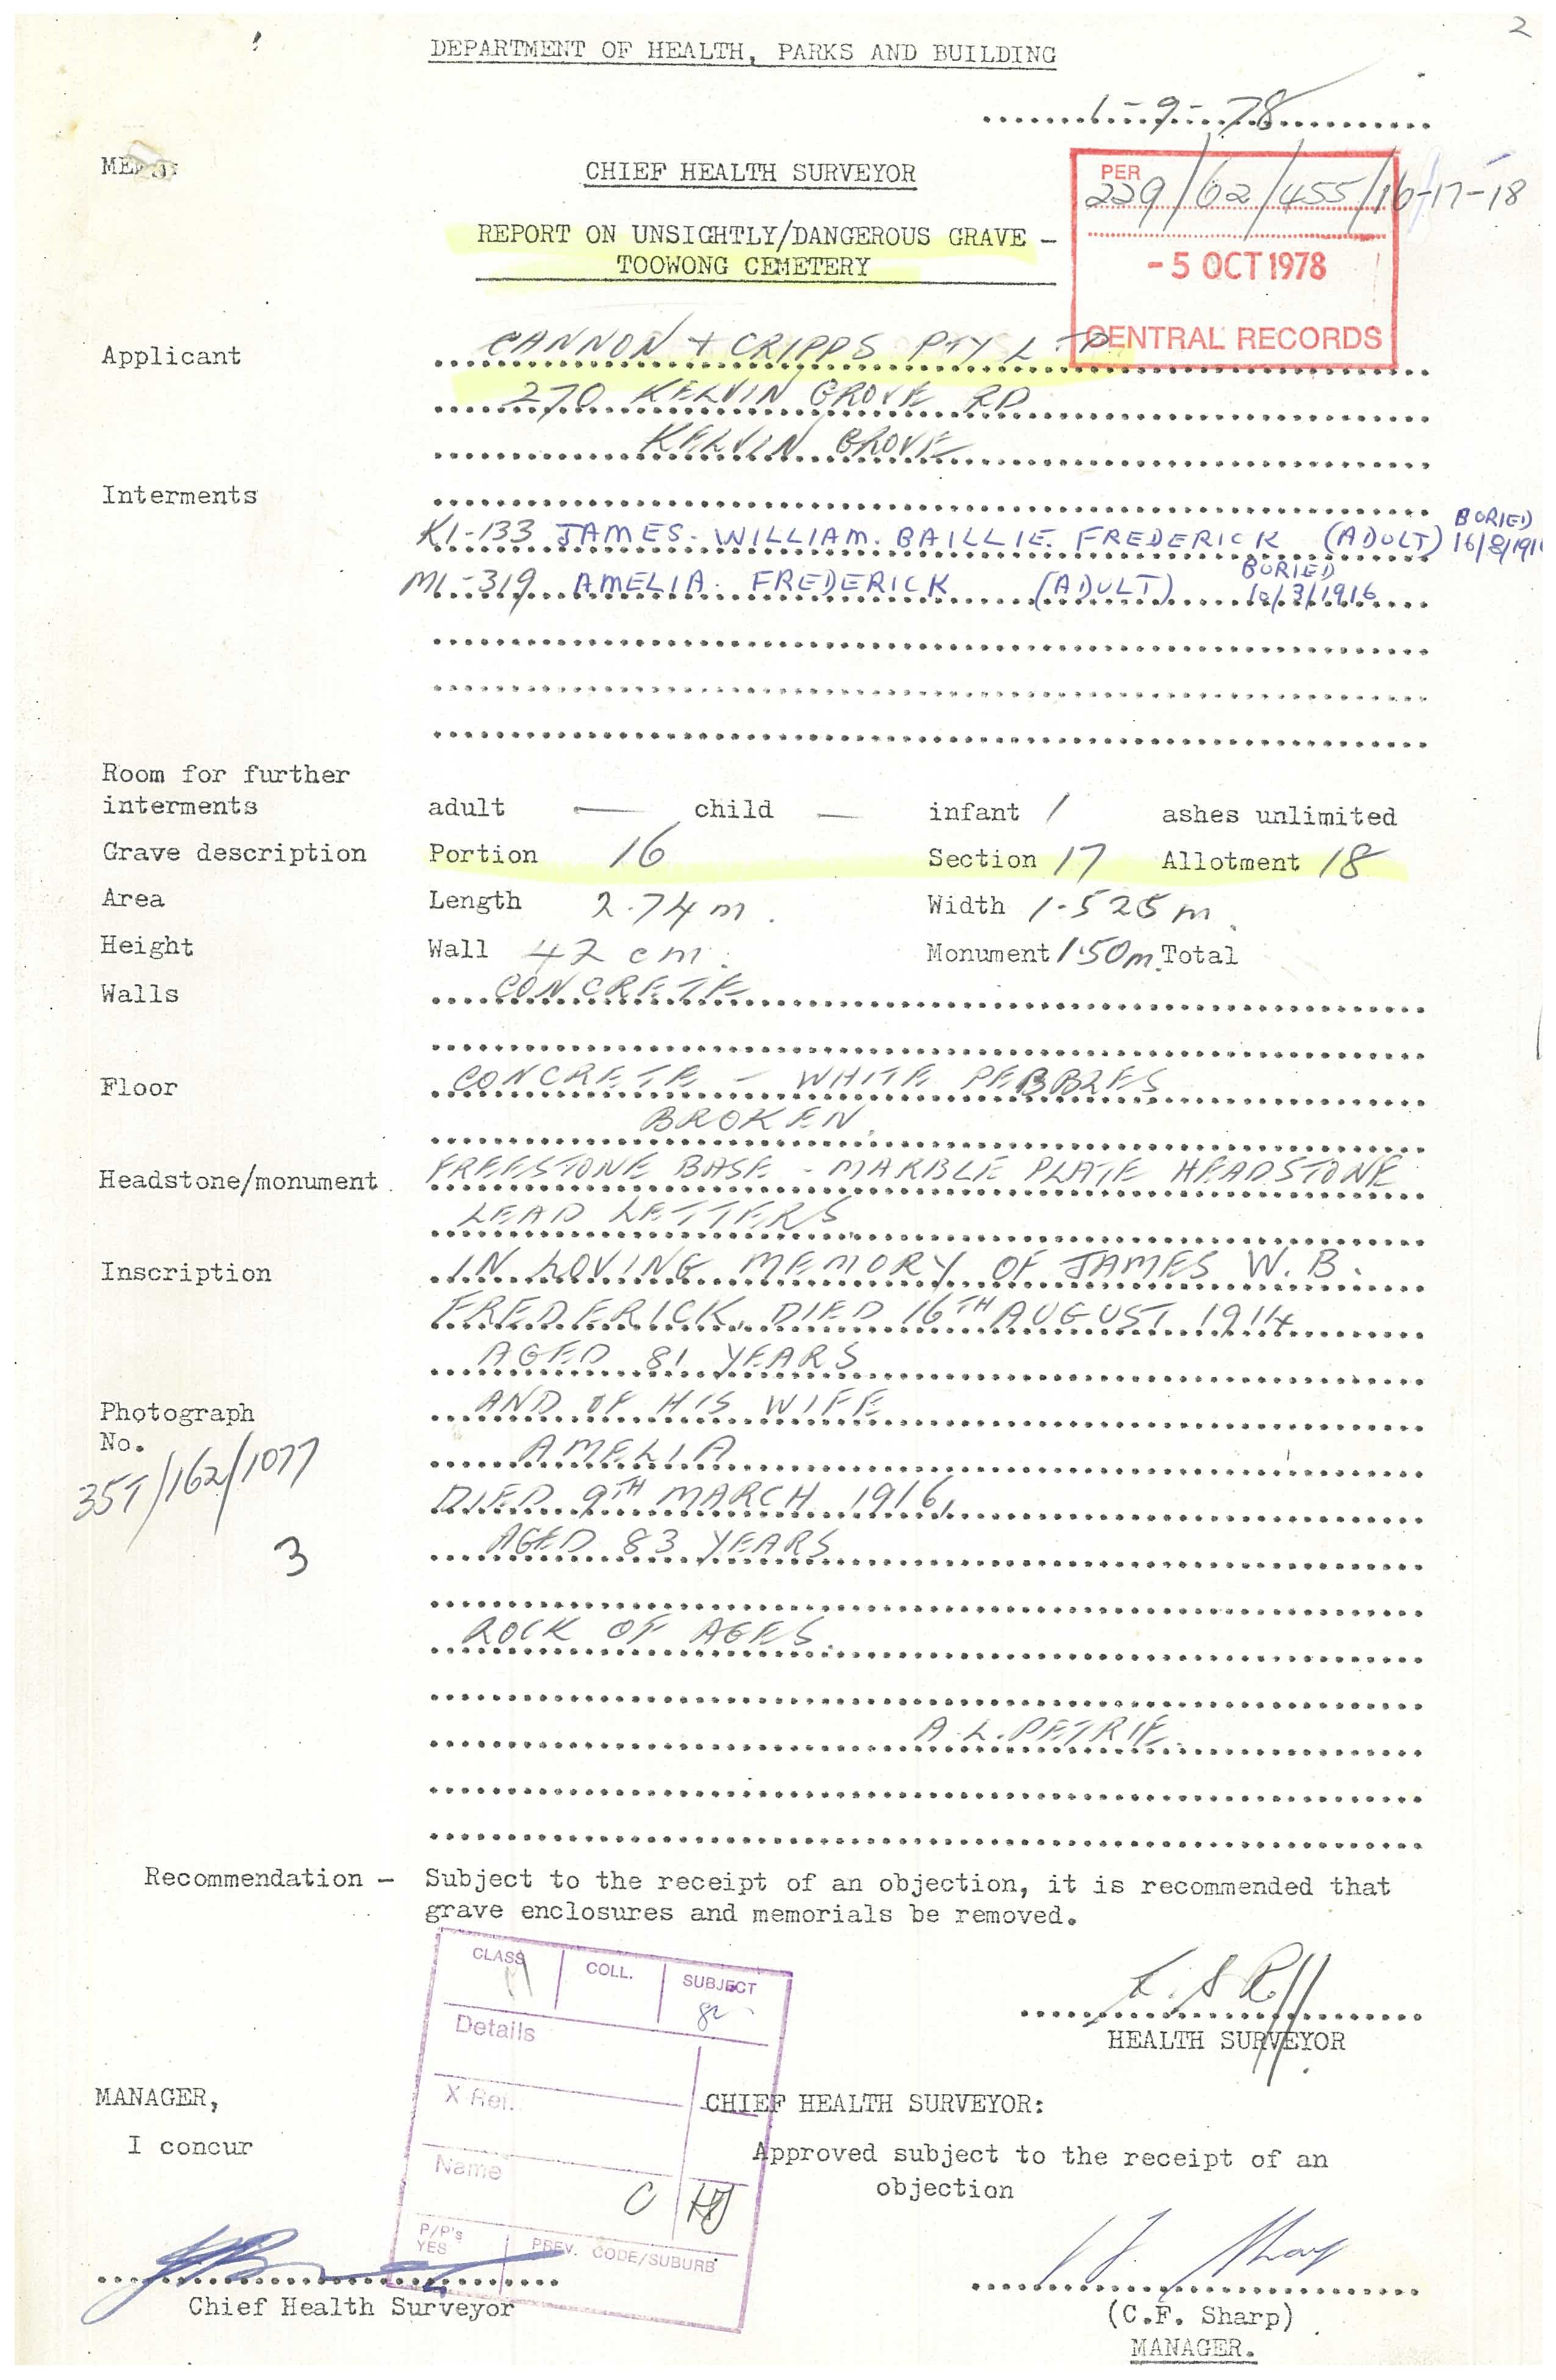 2
DEPARTMENT OF HEALTH, PARKS AND BUILDING
1-9-78
CHIEF HEALTH SURVEYOR
PER
229/02/455/16-17-18
- 5 OCT 1978
CENTRAL RECORDS
REPORT ON UNSIGHTLY/DANGEROUS GRAVE -
TOOWONG CEMETERY
Applicant CANNON + CRIPPS PTY LTD
270 KELVIN GROVE RD
KELVIN GROVE
Interments
K1-133 JAMES. WILLIAM. BAILLIE. FREDERICK (ADULT) BURIED
M1-319 AMELIA. FREDERICK (ADULT) BURIED 10/3/1916
Room for further
interments adult — child — infant 1 ashes unlimited
Grave description Portion 16 Section 17 Allotment 18
Area Length 2.74 m. Width 1.525 m.
Height Wall 42 cm. Monument 1.50m. Total
Walls CONCRETE
Floor CONCRETE - WHITE PEBBLES
BROKEN.
Headstone/monument. FREESTONE BASE - MARBLE PLATE HEADSTONE
LEAD LETTERS
Inscription IN LOVING MEMORY OF JAMES W.B.
FREDERICK. DIED 16TH AUGUST 1914
AGED 81 YEARS
Photograph AND OF HIS WIFE
No. AMELIA
35T/162/1077
DIED 9TH MARCH 1916,
3
AGED 83 YEARS
ROCK OF AGES.
A.L. PETRIE.
Recommendation - Subject to the receipt of an objection, it is recommended that
grave enclosures and memorials be removed.
CLASS COLL. SUBJECT
Details
HEALTH SURVEYOR
X Ref.
MANAGER, CHIEF HEALTH SURVEYOR:
I concur Approved subject to the receipt of an
objection
Name
C HJ
P/P's
YES PREV. CODE/SUBURB
Chief Health Surveyor
(C.F. Sharp)
MANAGER.